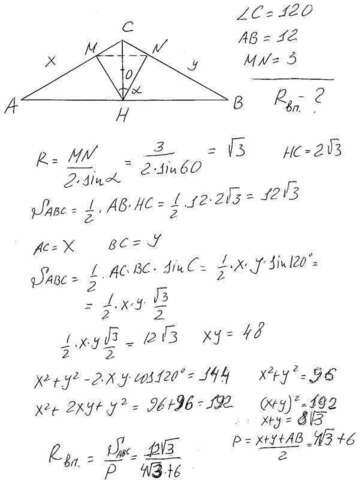 C
M N
x y
O
α
A H B
∠C = 120
AB = 12
MN = 3
Rвп. - ?
R = MN / 2·sinα = 3 / 2·sin60 = √3 HC = 2√3
S ABC = 1/2 · AB · HC = 1/2 · 12 · 2√3 = 12√3
AC = x BC = y
S ABC = 1/2 · AC · BC · sinC = 1/2 · x · y · sin120° =
= 1/2 · x · y · √3/2
1/2 · x · y √3/2 = 12√3 xy = 48
x² + y² - 2·xy·cos120° = 144 x² + y² = 96
x² + 2xy + y² = 96 + 96 = 192 (x+y)² = 192
x+y = 8√3
Rвп. = S ABC / P = 12√3 / 4√3+6 P = x+y+AB / 2 = 4√3 + 6